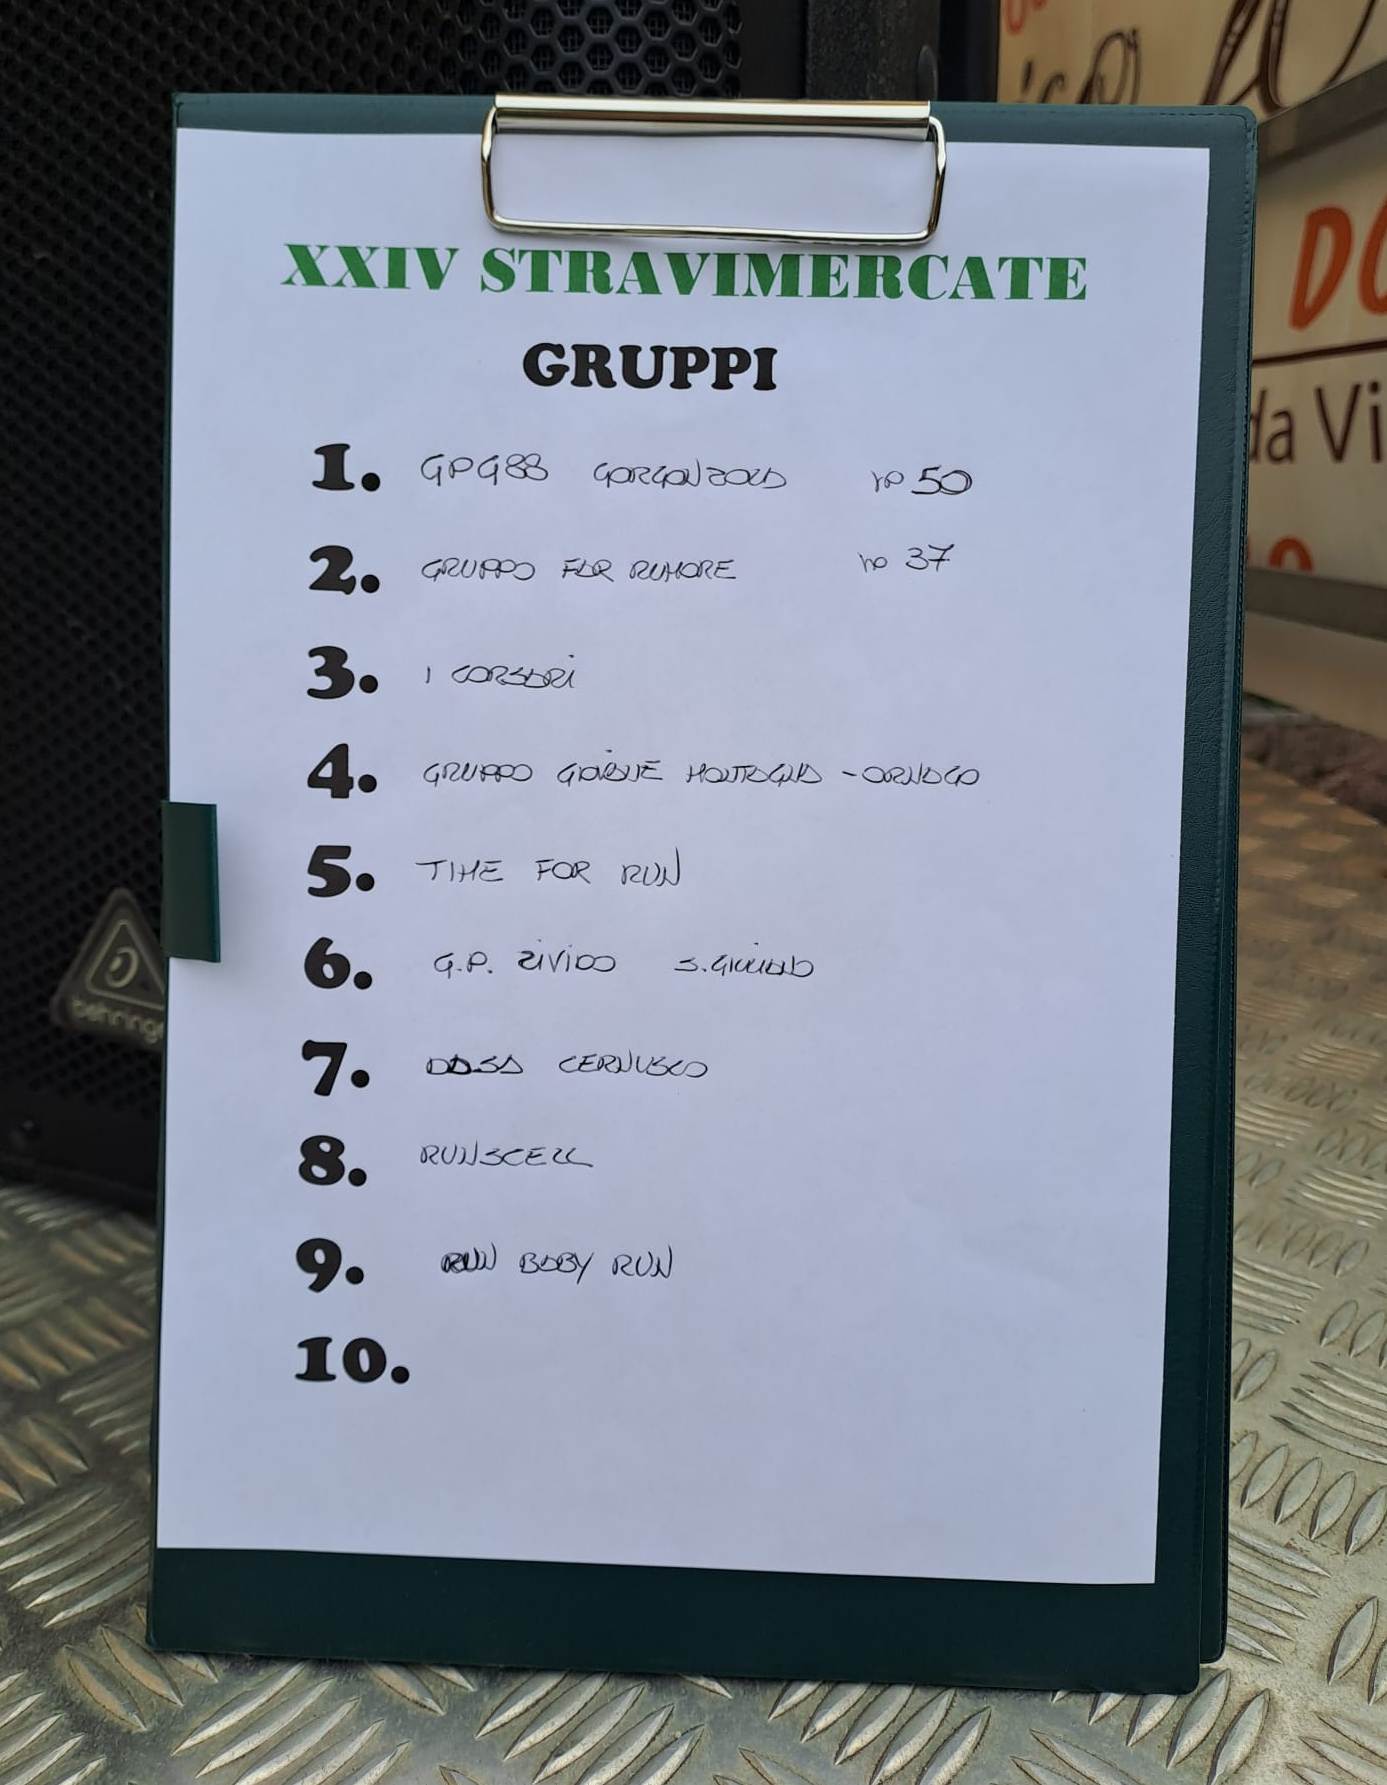 XXIV STRAVIMERCATE
GRUPPI
1. GPG88 GORGONZOLA n° 50
2. GRUPPO FOR RUMORE n° 37
3. I CORSARI
4. GRUPPO GIOVANE MONTAGNA - ORNAGO
5. TIME FOR RUN
6. G.P. ZIVIDO S.GIULIANO
7. CERNUSCO
8. RUNSCELL
9. RUN BABY RUN
10.
behringer
DO
da Vi